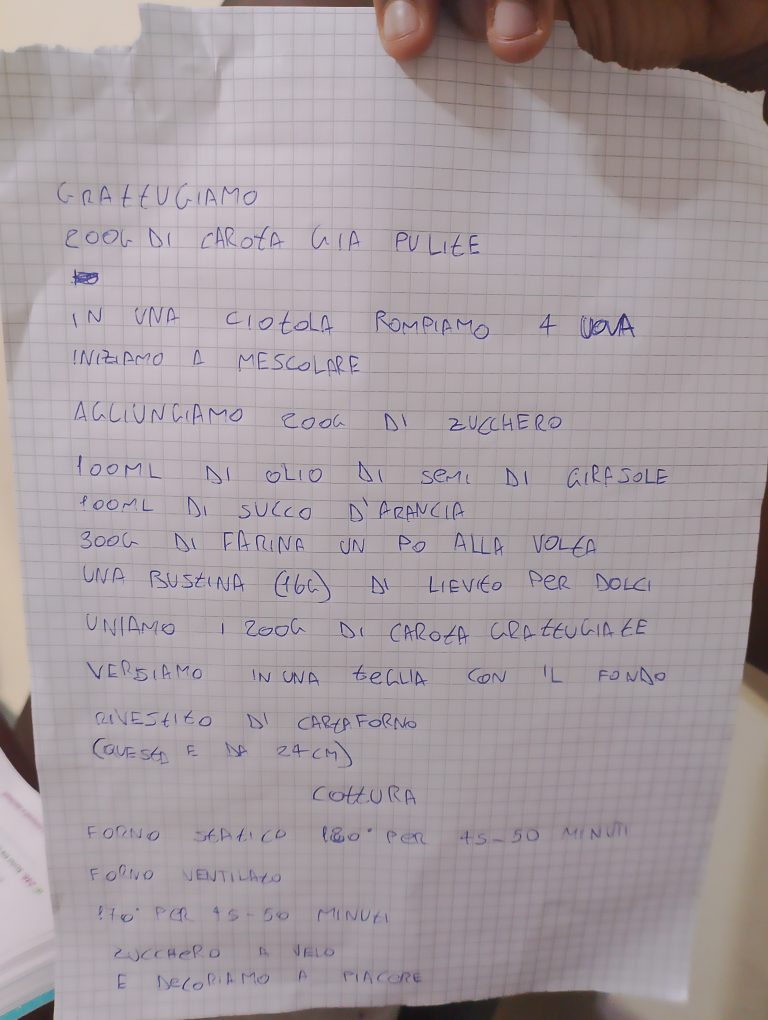 GRATTUGIAMO
200G DI CAROTA GIA PULITE
IN UNA CIOTOLA ROMPIAMO 4 UOVA
INIZIAMO A MESCOLARE
AGGIUNGIAMO 200G DI ZUCCHERO
100ML DI OLIO DI SEMI DI GIRASOLE
100ML DI SUCCO D'ARANCIA
300G DI FARINA UN PO ALLA VOLTA
UNA BUSTINA (16G) DI LIEVITO PER DOLCI
UNIAMO I 200G DI CAROTA GRATTUGIATE
VERSIAMO IN UNA TEGLIA CON IL FONDO
RIVESTITO DI CARTA FORNO
(QUESTA E DA 24 CM)
COTTURA
FORNO STATICO 180° PER 45-50 MINUTI
FORNO VENTILATO
170° PER 45-50 MINUTI
ZUCCHERO A VELO
E DECORIAMO A PIACORE